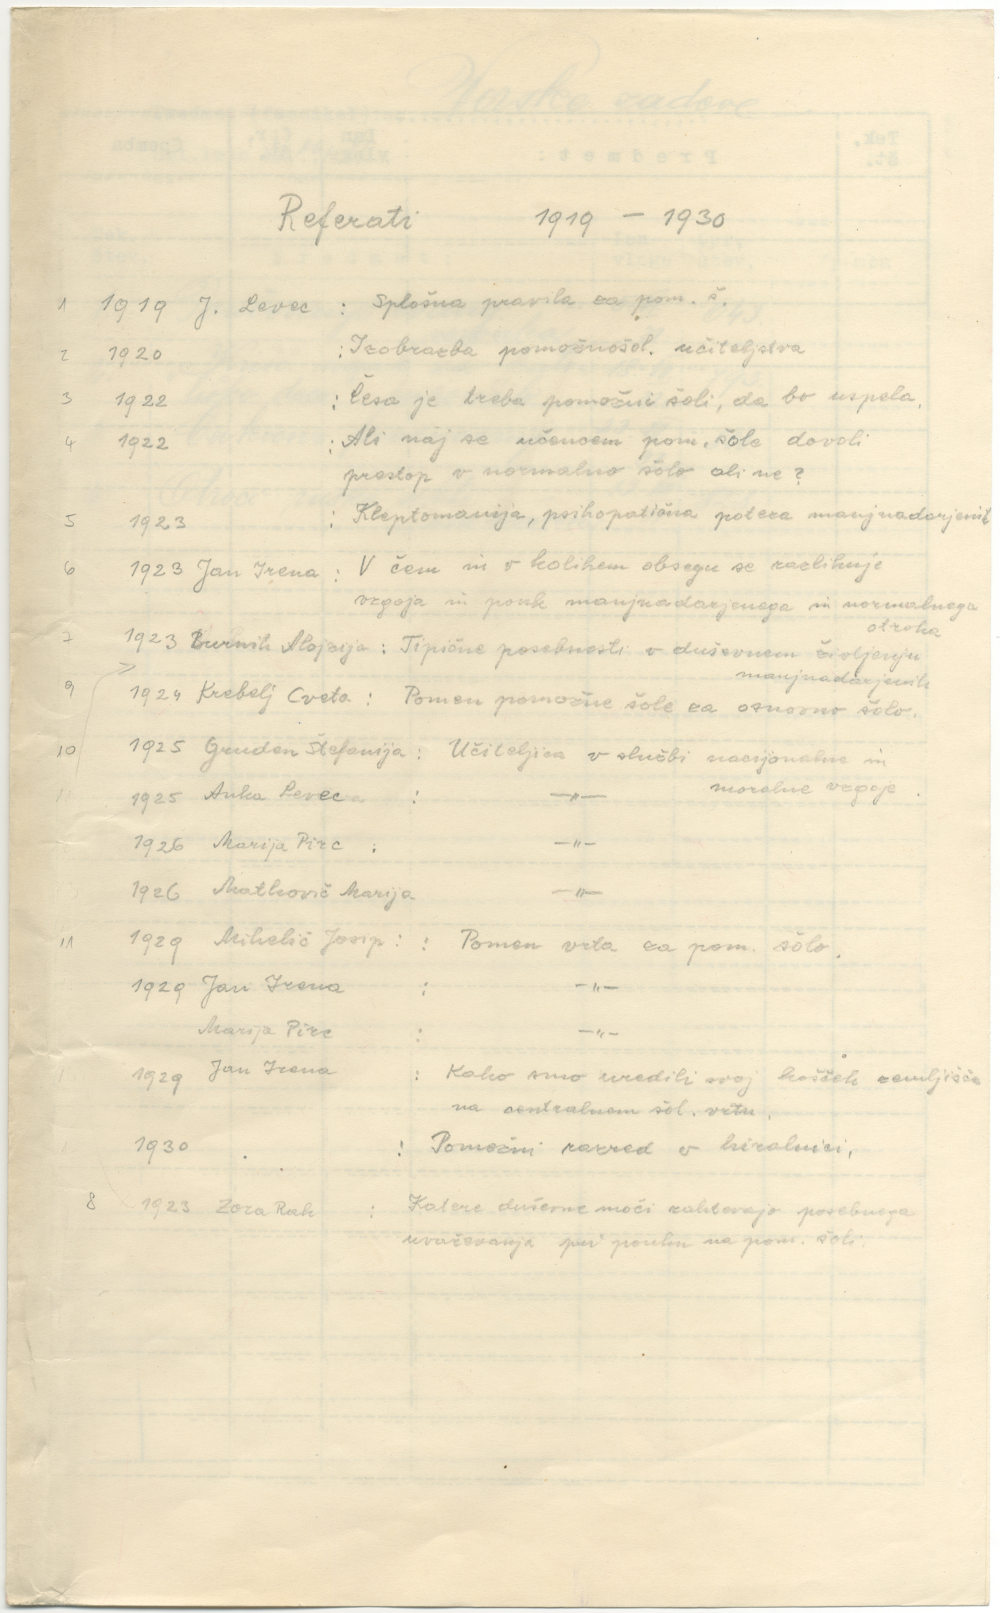 Referati 1919 — 1930
1 1919 J. Levec : Splošna pravila za pom. š.
2 1920 : Izobrazba pomožnošol. učiteljstva
3 1922 : Česa je treba pomožni šoli, da bo uspela.
4 1922 : Ali naj se učencem pom. šole dovoli
prestop v normalno šolo ali ne?
5 1923 : Kleptomanija, psihopatična poteza manjnadarjenih
6 1923 Jan Irena : V čem in v kolikem obsegu se razlikuje
vzgoja in pouk manjnadarjenega in normalnega
otroka
7 1923 Burnik Alojzija : Tipične posebnosti v duševnem življenju
manjnadarjenih
9 1924 Krebelj Cveta : Pomen pomožne šole za osnovno šolo.
10 1925 Gruden Štefanija : Učiteljica v službi nacijonalne in
moralne vzgoje.
11 1925 Anka Levec : —"—
1926 Marija Pirc : —"—
1926 Matkovič Marija —"—
11 1929 Mihelič Josip : : Pomen vrta za pom. šolo.
1929 Jan Irena : —"—
Marija Pirc : —"—
1929 Jan Irena : Kako smo uredili svoj košček zemljišča
na centralnem šol. vrtu.
1930 : Pomožni razred v hiralnici.
8 1923 Zora Rak : Katere duševne moči zahtevajo posebnega
uvaževanja pri pouku na pom. šoli.